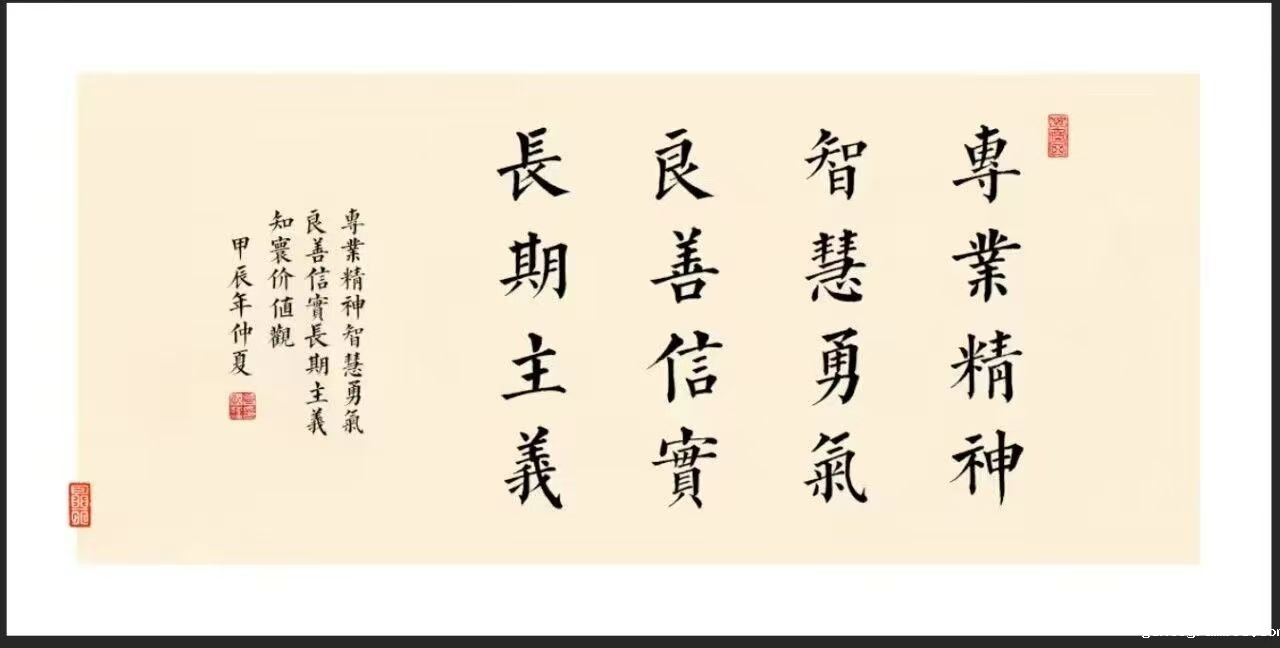 專業精神
智慧勇氣
良善信實
長期主義
專業精神智慧勇氣
良善信實長期主義
知寰价值觀
甲辰年仲夏